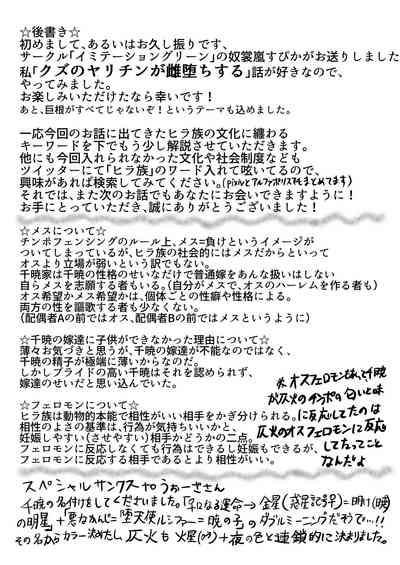 ☆後書き☆
初めまして、あるいはお久し振りです、
サークル「イミテーショングリーン」の奴裳嵐すぴかがお送りしました
私「クズのヤリチンが雌堕ちする」話が好きなので、
やってみました。
お楽しみいただけたなら幸いです！
あと、巨根がすべてじゃないぞ！というテーマも込めました。
一応今回のお話に出てきたヒラ族の文化に纏わる
キーワードを下でもう少し解説させていただきます。
他にも今回入れられなかった文化や社会制度なども
ツイッターにて「ヒラ族」のワード入れて呟いてるので、
興味があれば検索してみてください。(pixivとアルファポリスでもまとめてます)
それでは、また次のお話でもあなたにお会いできますように！
お手にとっていただき、誠にありがとうございました！
☆メスについて☆
チンポフェンシングのルール上、メス=負けというイメージが
ついてしまっているが、ヒラ族の社会的にはメスだからといって
オスより立場が弱いという訳でもない。
千暁家は千暁の性格のせいなだけで普通嫁をあんな扱いはしない
自らメスを志願する者もいる。(自分がメスで、オスのハーレムを作る者も)
オス希望かメス希望かは、個体ごとの性癖や性格による。
両方の性を謳歌する者も少なくない。
(配偶者Aの前ではオス、配偶者Bの前ではメスというように)
☆千暁の嫁達に子供ができなかった理由について☆
薄々お気づきと思うが、千暁の嫁達が不能なのではなく、
千暁の精子が極端に薄いからなのだ。
しかしプライドの高い千暁はそれを認められず、
嫁達のせいだと思い込んでいた。
☆フェロモンについて☆
ヒラ族は動物的本能で相性がいい相手をかぎ分けられる。
相性のよさの基準は、行為が気持ちいいかと、
妊娠しやすい(させやすい)相手かどうかの二点。
フェロモンに反応しなくても行為はできるし妊娠もできるが、
フェロモンに反応する相手であるとより相性がいい。
※オスフェロモンもあって千暁
が仄火のチンポの匂いと味
に反応してたのは
仄火のオスフェロモンに反応
してたってこと
なんだよ
スペシャルサンクス
千暁の名付けをしてくださいました。
金星(惑星記号♀)=明け(暁)
の明星
堕天使ルシファー=暁の子
のダブルミーニングだそうで…!!
その名からカラー決めたし、仄火も火星(♂)+夜の色と連鎖的に決まりました。